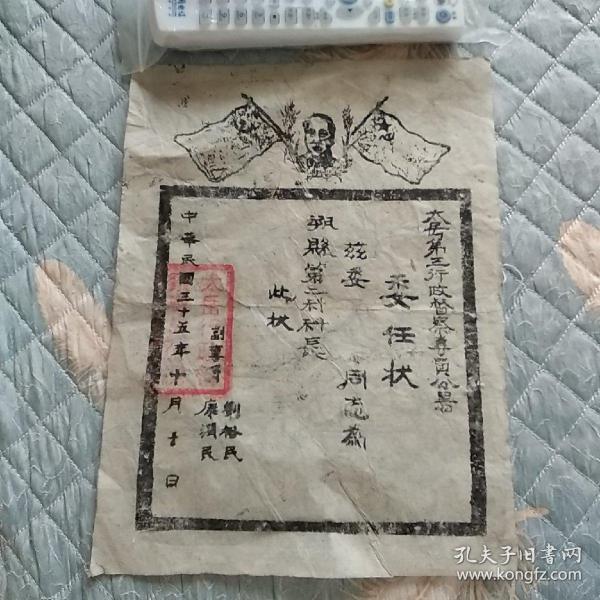 太岳第三行政督察專員公署
委任状
茲委 周志
翔縣第二科科長
此状
副專員
劉裕民
康濱民
中華民國三十五年十月十日
孔夫子旧书网
www.kongfz.com